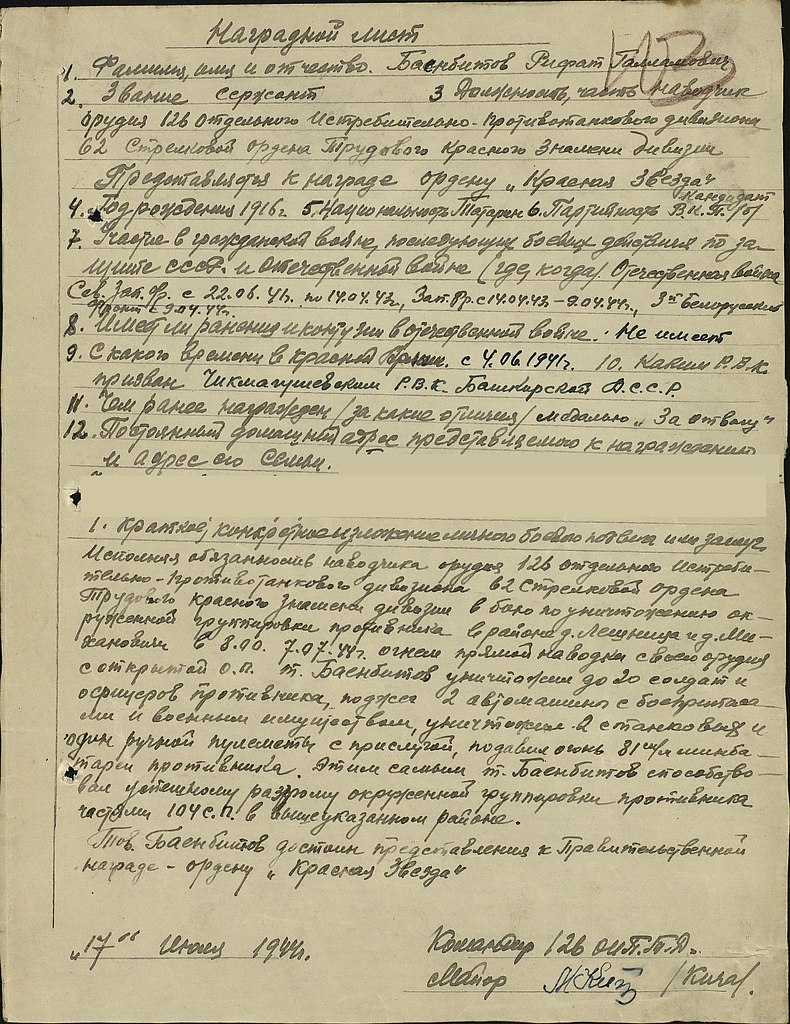 Наградной лист
1. Фамилия, имя и отчество. Баенбитов Рифат
2. Звание сержант 3 Должность, часть наводчик
орудия 126 отдельного Истребительно-Противотанкового дивизиона
62 Стрелковой ордена Трудового Красного Знамени дивизии
Представляется к награде ордену „Красная Звезда"
кандидат
4. Год рождения 1916 г. 5. Национальность Татарин 6. Партийность В.К.П./б/
7. Участие в гражданской войне, последующих боевых действиях по за-
щите СССР. и Отечественной войне (где, когда). Отечественная война
Сев. Зап. Фр. с 22.06.41. по 14.04.42., Зап. Фр. с 14.04.42 – 9.04.44г., 3й Белорусский
Фронт с 9.04.44г.
8. Имеет ли ранения и контузии в отечественной войне. Не имеет
9. С какого времени в красной Армии. с 4.06.1941г. 10. Каким Р.В.К.
призван Чикмагушевским Р.В.К. Башкирской А.С.С.Р.
11. Чем ранее награжден /за какие отличия/ медалью „За отвагу"
12. Постоянный домашний адрес представляемого к награждению
и адрес его семьи.
1. Краткое, конкретное изложение личного боевого подвига или заслуг.
Исполняя обязанности наводчика орудия 126 отдельного Истреби-
тельно-Противотанкового дивизиона 62 Стрелковой ордена
Трудового Красного Знамени дивизии в бою по уничтожению ок-
руженной группировки противника в районе д. Лешница и д. Ми-
хановичи в 8.00. 7.07.44г. огнем прямой наводки с своего орудия
с открытой О.П. т. Баенбитов уничтожил до 20 солдат и
офицеров противника, поджег 2 автомашины с боеприпаса-
ми и военным имуществом, уничтожил 2 станковых и
один ручной пулеметы с прислугой, подавил огонь 81 м/м минба-
тареи противника. Этим самым т. Баенбитов способство-
вал успешному разгрому окруженной группировки противника
частями 104 с.п. в вышеуказанном районе.
Тов. Баенбитов достоин представления к Правительственной
награде - ордену „Красная Звезда"
„17" Июля 1944г. Командир 126 ОИПТД.
Майор /Кича/.